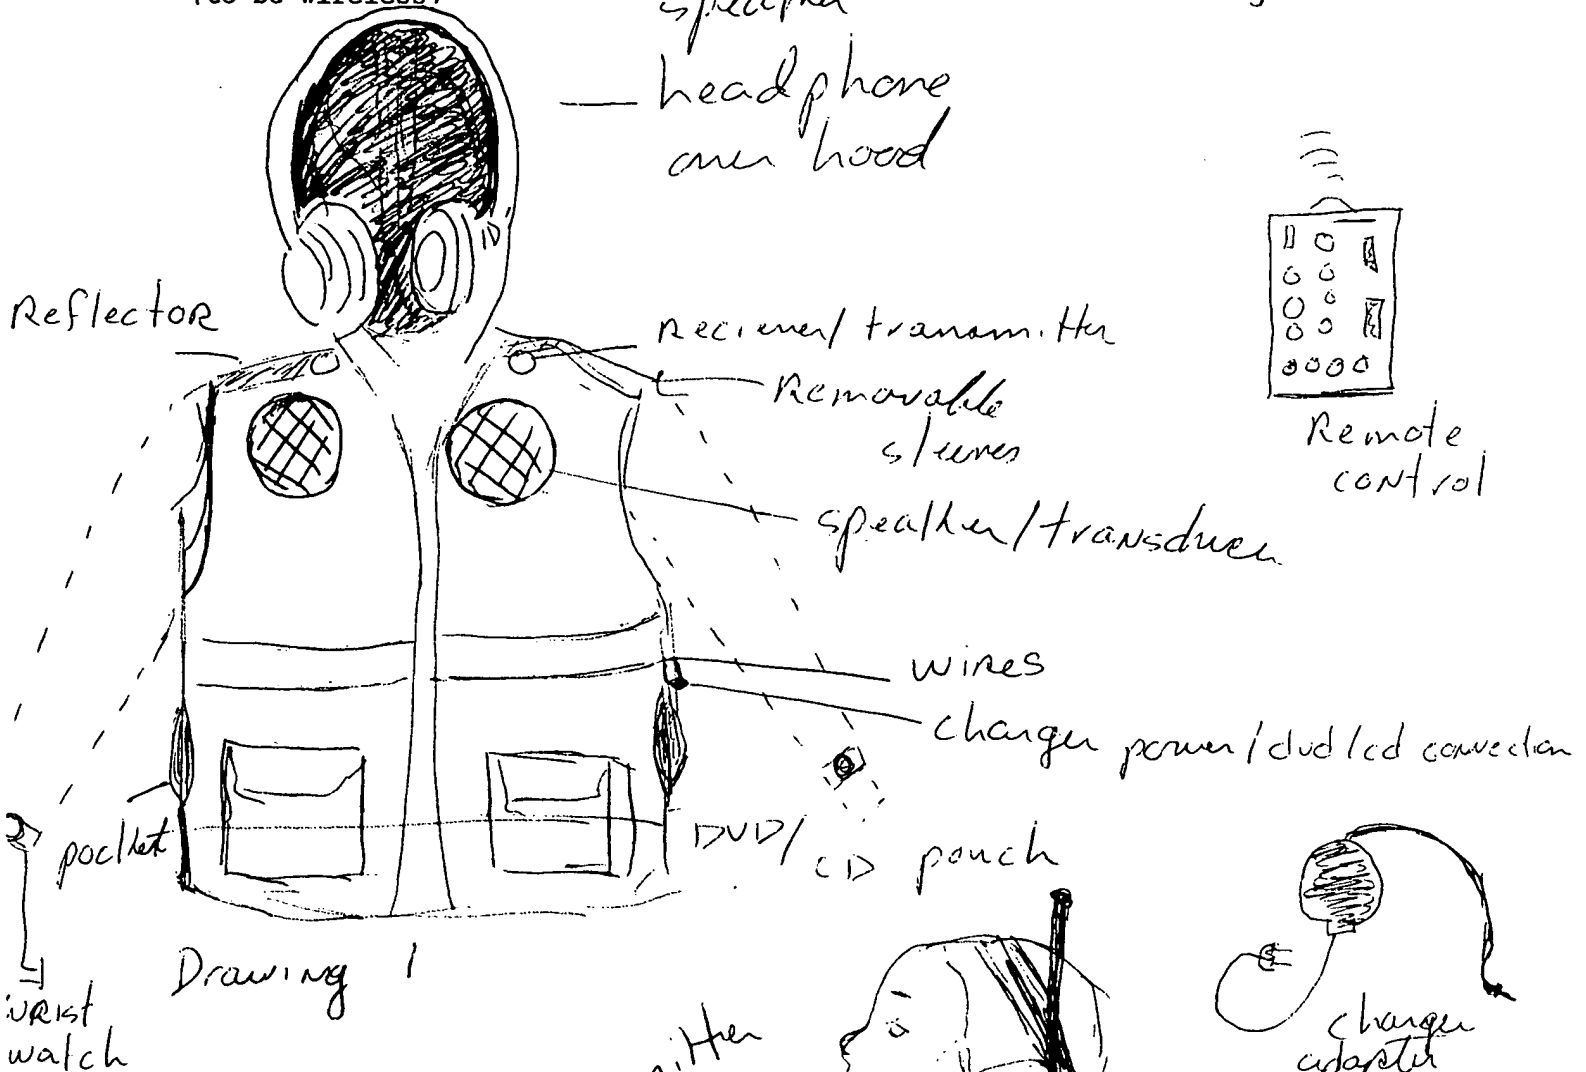 (to be wireless?
speaker
headphone
over hood
Reflector
Reciever/transmitter
Removable
sleeves
Remote
control
speakher/transducer
wires
charger power/dvd/cd connection
pocket
DVD/
CD pouch
Drawing 1
wrist
watch
charger
adapter